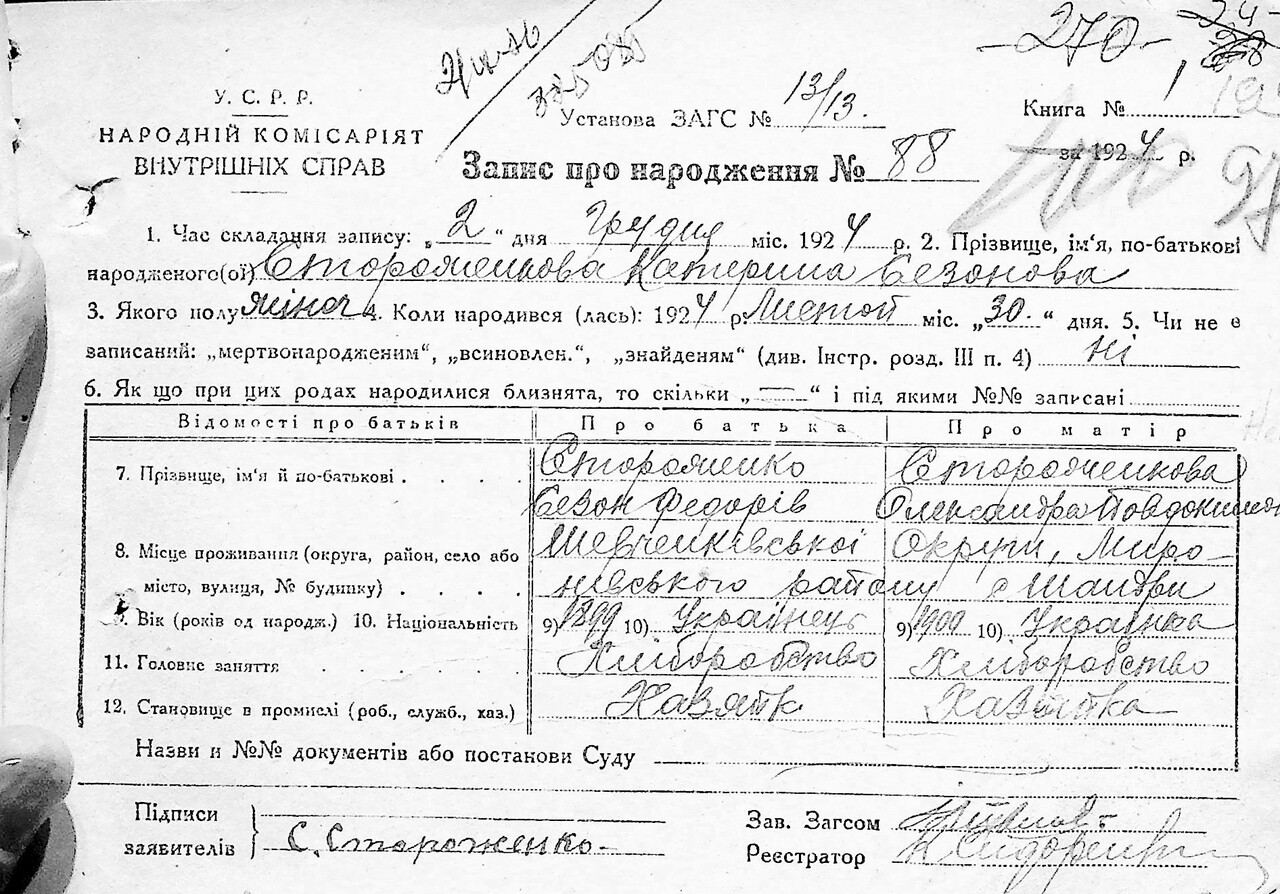 -270-
385080
У. С. Р. Р.
НАРОДНІЙ КОМІСАРІЯТ
ВНУТРІШНІХ СПРАВ
Установа ЗАГС № 13/13.
Книга № 1
за 1924 р.
Запис про народження № 88
1. Час складання запису: „2“ дня Грудня міс. 1924 р. 2. Прізвище, ім'я, по-батькові
народженого(ої) Стороженкова Катерина Сезонова
3. Якого полу жіноч 4. Коли народився (лась): 1924 р. Листоп міс. „30.“ дня. 5. Чи не є
записаний: „мертвонародженим“, „всиновлен.“, „знайденям“ (див. Інстр. розд. III п. 4) ні
6. Як що при цих родах народилися близнята, то скільки „—“ і під якими №№ записані
Відомості про батьків Про батька Про матір
7. Прізвище, ім'я й по-батькові . . . . Стороженко Стороженкова
Сезон Федорів Олександра
8. Місце проживання (округа, район, село або Шевченківської Округи, Миро-
місто, вулиця, № будинку) . . . . нівського району с Шандри
9. Вік (років од народж.) 10. Національність 9) 1899 10) Українець 9) 1900 10) Українка
11. Головне заняття . . . . Хліборобство Хліборобство
12. Становище в промислі (роб., служб., хаз.) Хазяїн Хазяйка
Назви и №№ документів або постанови Суду
Підписи
заявителів С. Стороженко
Зав. Загсом
Реєстратор